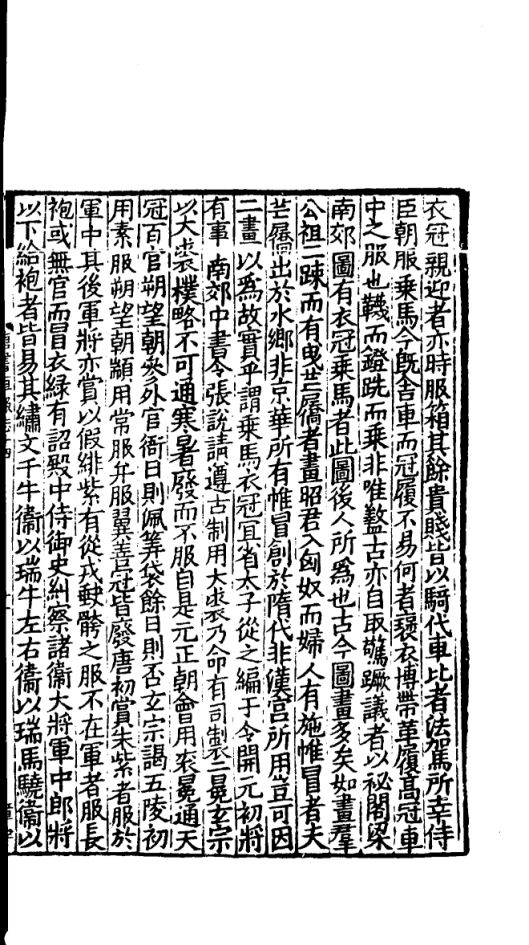 衣冠親迎者亦時服箱其餘貴賤皆以騎代車比者法駕所幸侍
臣朝服乘馬今旣舍車而冠履不易何者襃衣博帶革履高冠車
中之服也韈而鐙跣而乘非唯盭古亦自取驚蹶議者以祕閣梁
南郊圖有衣冠乘馬者此圖後人所爲也古今圖畫多矣如畫羣
公祖二疎而有曳芒屩者畫昭君入匈奴而婦人有施帷冒者夫
芒屩出於水鄉非京華所有帷冒創於隋代非漢宮所用豈可因
二畫以爲故實乎謂乘馬衣冠宜省太子從之編于令開元初將
有事南郊中書令張說請遵古制用大裘乃命有司製二冕玄宗
以大裘樸略不可通寒暑廢而不服自是元正朝會用衮冕通天
冠百官朔望朝參外官衙日則佩筭袋餘日則否玄宗謁五陵初
用素服朔望朝顓用常服弁服翼善冠皆廢唐初賞朱紫者服於
軍中其後軍將亦賞以假緋紫有從戎缺骻之服不在軍者服長
袍或無官而冒衣綠有詔殿中侍御史糾察諸衞大將軍中郎將
以下給袍者皆易其繡文千牛衞以瑞牛左右衞以瑞馬驍衞以